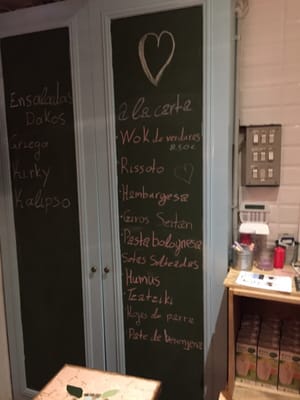 Ensaladas
Dakos
Griega
Kurky
Kalipso
a la carta
· Wok de verduras
8.50€
· Rissoto
· Hamburgesa
· Guiros Seitan
· Pasta bolognesa
Setas Salteadas
· Humus
· Tzatziki
· Hojas de parra
· Pate de berengena